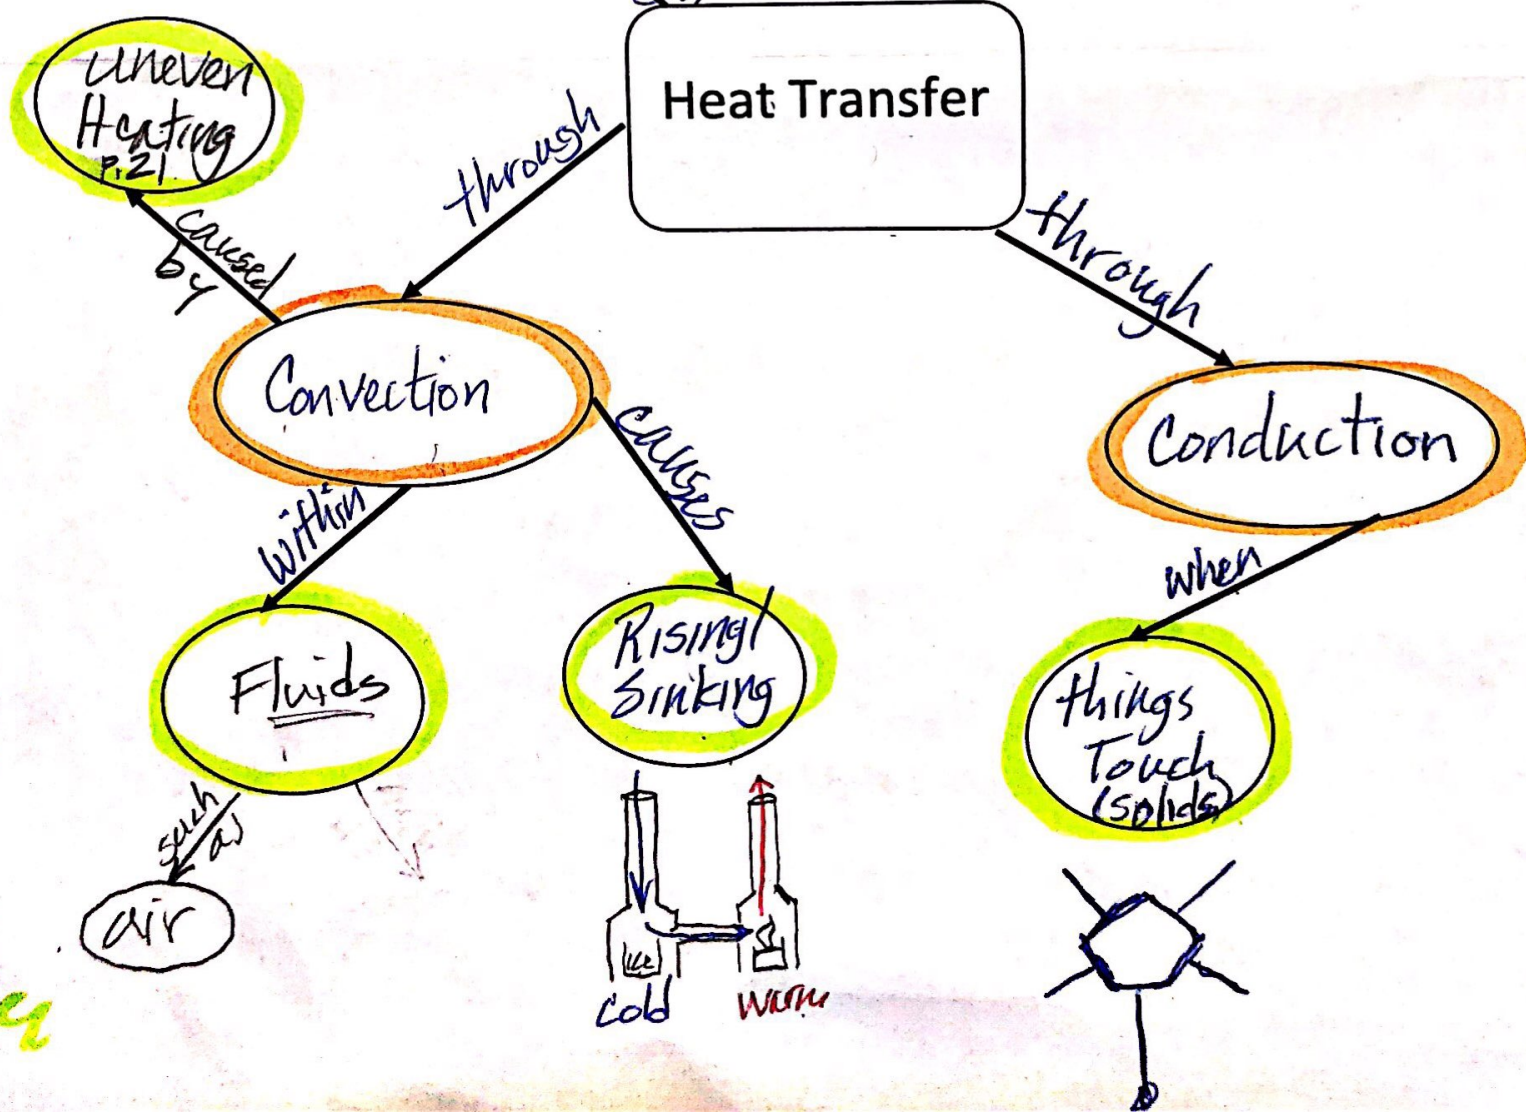 Heat Transfer
through
through
Uneven
Heating
p.21
caused
by
Convection
Conduction
within
causes
when
Fluids
Rising/
Sinking
things
Touch
(solids)
such
as
air
Ice
Cold
Warm